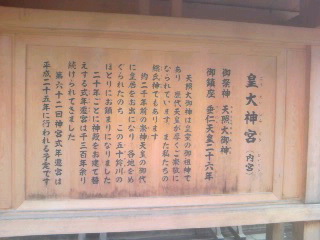 皇大神宮(内宮)
御祭神 天照大御神
御鎮座 垂仁天皇二十六年
天照大御神は皇室の御祖神で
あり 歴代天皇が厚くご崇敬に
なられています。また私たちの
総氏神でもあります
約二千年前の崇神天皇の御代
に皇居をお出になり 各地をめ
ぐられたのち この五十鈴川の
ほとりにお鎮まりになりました
二十年ごとに神殿をお建て替
えする式年遷宮は千三百年余り
続けられてきました。
第六十二回神宮式年遷宮は
平成二十五年に行われる予定です